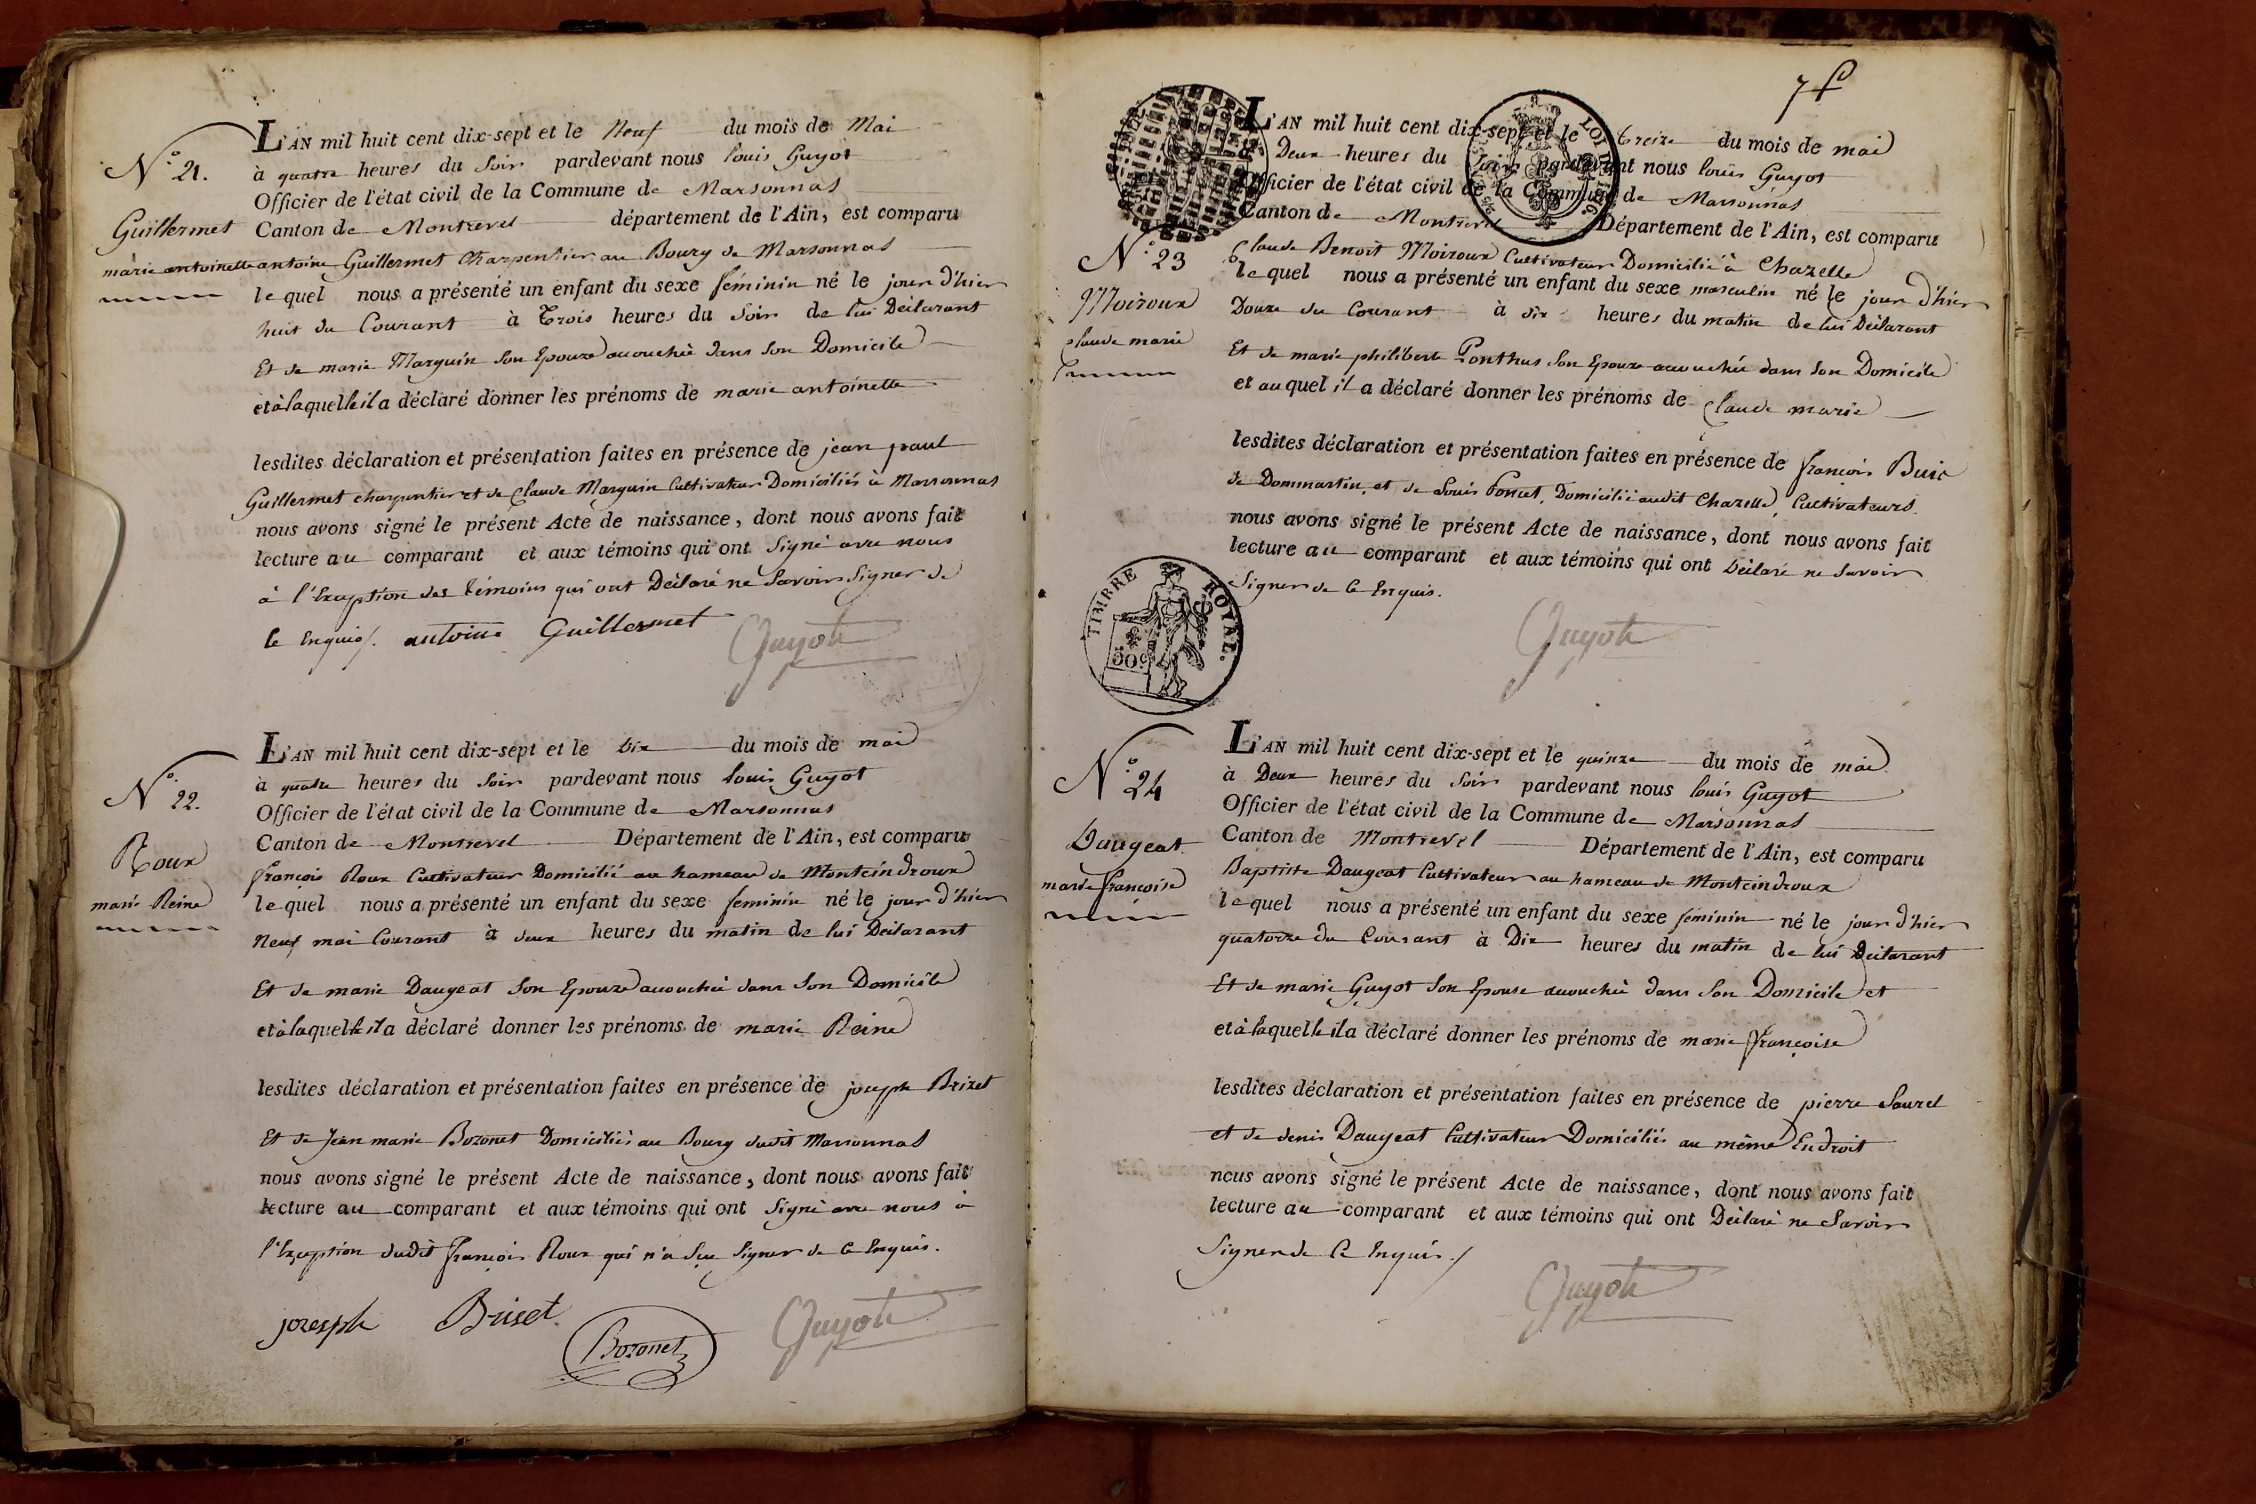 N.° 21.
Guillermet
marie antoinette
L'AN mil huit cent dix-sept et le Neuf du mois de Mai
à quatre heures du Soir pardevant nous louis Guyot
Officier de l'état civil de la Commune de Marsonnas
Canton de Montrevel département de l'Ain, est comparu
antoine Guillermet Charpentier au Bourg de Marsonnas
lequel nous a présenté un enfant du sexe féminin né le jour d'hier
huit du Courant à Trois heures du Soir de lui Déclarant
Et de marie Marguin Son Epouze accouchée dans Son Domicile
et à laquelle il a déclaré donner les prénoms de marie antoinette
lesdites déclaration et présentation faites en présence de jean paul
Guillermet charpentier et de Claude Marguin Cultivateur Domiciliés à Marsonnas
nous avons signé le présent Acte de naissance, dont nous avons fait
lecture au comparant et aux témoins qui ont Signé avec nous
à l'Exception des témoins qui ont Déclaré ne Savoir Signer de
ce Enquis. antoine Guillermet Guyot
N.° 22.
Roux
marie Reine
L'AN mil huit cent dix-sept et le Dix du mois de mai
à quatre heures du Soir pardevant nous louis Guyot
Officier de l'état civil de la Commune de Marsonnas
Canton de Montrevel Département de l'Ain, est comparu
françois Roux Cultivateur Domicilié au hameau de Montcindroux
lequel nous a présenté un enfant du sexe féminin né le jour d'hier
Neuf mai Courant à deux heures du matin de lui Déclarant
Et de marie Daugeat Son Epouze accouchée dans Son Domicile
et à laquelle il a déclaré donner les prénoms de marie Reine
lesdites déclaration et présentation faites en présence de joseph Brizet
Et de Jean marie Bozonet Domiciliés au Bourg dudit Marsonnas
nous avons signé le présent Acte de naissance, dont nous avons fait
lecture au comparant et aux témoins qui ont Signé avec nous à
l'Exception dudit françois Roux qui n'a Sçu Signer de ce Enquis.
joseph Briset Bozonet Guyot
7
LOI 1816
N.° 23
Moiroux
claude marie
L'AN mil huit cent dix-sept et le treize du mois de mai
à Deux heures du Soir pardevant nous louis Guyot
Officier de l'état civil de la Commune de Marsonnas
Canton de Montrevel Département de l'Ain, est comparu
Claude Benoit Moiroux Cultivateur Domicilié à Chazelle
lequel nous a présenté un enfant du sexe masculin né le jour d'hier
Douze du Courant à dix heures du matin de lui Déclarant
Et de marie philiberte Ponthus Son Epouze accouchée dans Son Domicile
et auquel il a déclaré donner les prénoms de Claude marie
lesdites déclaration et présentation faites en présence de françois Buic
de Dommartin, et de Louis Poncet, Domicilié audit Chazelle, Cultivateurs.
nous avons signé le présent Acte de naissance, dont nous avons fait
lecture au comparant et aux témoins qui ont Déclaré ne Savoir
Signer de Ce Enquis.
TIMBRE ROYAL.
50C
Guyot
N.° 24
Daugeat
marie françoise
L'AN mil huit cent dix-sept et le quinze du mois de mai
à Deux heures du Soir pardevant nous louis Guyot
Officier de l'état civil de la Commune de Marsonnas
Canton de Montrevel Département de l'Ain, est comparu
Baptiste Daugeat Cultivateur au hameau de Montcindroux
lequel nous a présenté un enfant du sexe féminin né le jour d'hier
quatorze du Courant à Dix heures du matin de lui Déclarant
Et de marie Guyot Son Epouse accouchée dans Son Domicile et
et à laquelle il a déclaré donner les prénoms de marie françoise
lesdites déclaration et présentation faites en présence de pierre Saurel
et de denis Daugeat Cultivateur Domiciliés au même Endroit
nous avons signé le présent Acte de naissance, dont nous avons fait
lecture au comparant et aux témoins qui ont Déclaré ne Savoir
Signer de Ce Enquis.
Guyot